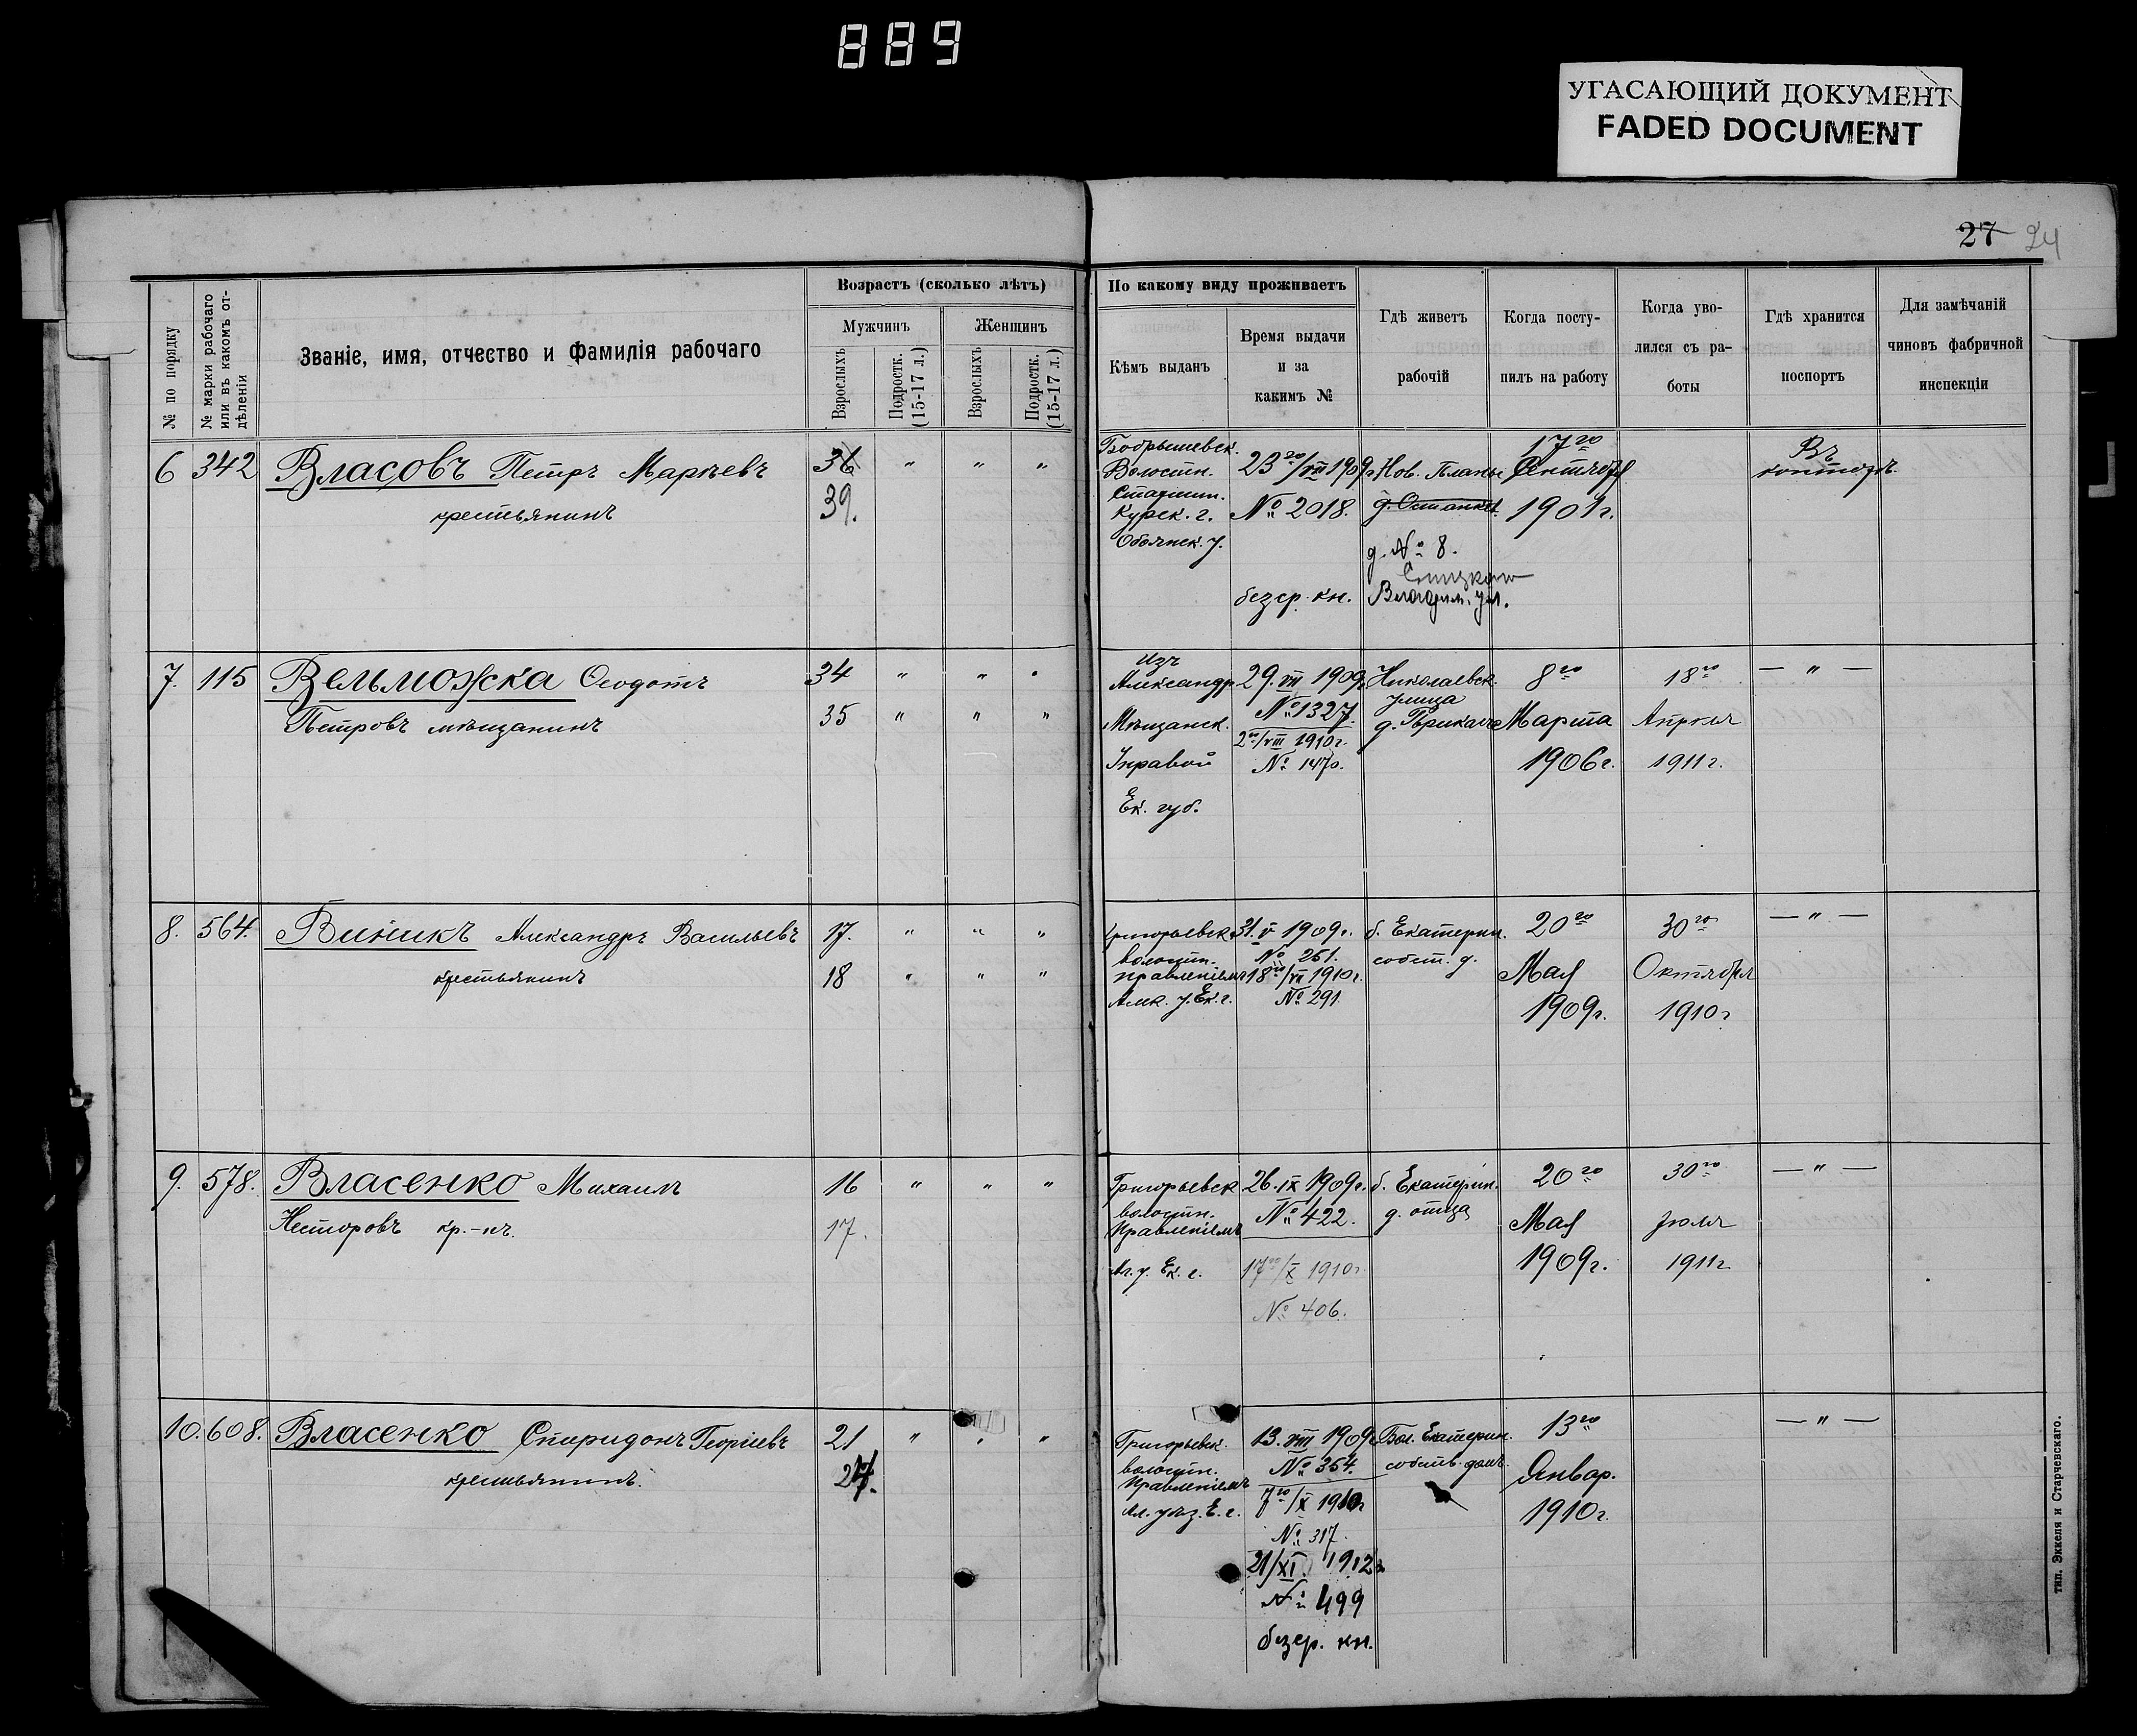 889
УГАСАЮЩИЙ ДОКУМЕНТ
FADED DOCUMENT
27 24
№ по порядку
№ марки рабочаго
или въ какомъ от-
дѣленіи
Званіе, имя, отчество и фамилія рабочаго
Возрастъ (сколько лѣтъ)
Мужчинъ
Женщинъ
Взрослыхъ
Подростк.
(15-17 л.)
Взрослыхъ
Подростк.
(15-17 л.)
По какому виду проживаетъ
Кѣмъ выданъ
Время выдачи
и за
какимъ №
Гдѣ живетъ
рабочій
Когда посту-
пилъ на работу
Когда уво-
лился съ ра-
боты
Гдѣ хранится
поспортъ
Для замѣчаній
чиновъ фабричной
инспекціи
6 342 Власовъ Петръ
крестьянинъ
36 " " "
39.
Бобрышевск.
Волостн.
Курск. г.
Обоянск. у.
23го/VIII 1909г.
№ 2018.
безср. кн.
Нов. Планы
д. № 8.
17го
Сентября
1901г.
Въ
конторѣ
7. 115 Вельможка Ѳеодотъ
Петровъ мѣщанинъ
34 " " "
35 " " "
Александр
Мѣщанск.
Управой
Ек. губ.
29. VIII 1909г.
№ 1327.
2го/VIII 1910г.
№ 1470.
Николаевск.
улица
8го
Марта
1906г.
18го
Апрѣля
1911г.
— " —
8. 564. Виникъ Александръ Васильевъ
крестьянинъ
17. " " "
18 " " "
Григорьевск.
волостн.
правленіемъ
Алк. у. Ек. г.
31. V 1909г.
№ 261.
18го/VII 1910г.
№ 291.
б. Екатерин.
собст. д.
20го
Мая
1909г.
30го
Октября
1910г
— " —
9. 578. Власенко Михаилъ
Несторовъ кр.-нъ.
16 " " "
17.
Григорьевск
волостн.
Правленіемъ
Ал. у. Ек. г.
26. IX 1909г.
№ 422.
17го/X 1910г.
№ 406.
б. Екатерин.
д. отца
20го
Мая
1909г.
30го
Іюля
1911г
— " —
10. 608. Власенко Спиридонъ Георгіевъ
крестьянинъ.
21 " " "
Григорьевск.
волостн.
Правленіемъ
Ал. уѣз. Е. г.
13. VIII 1909г.
№ 354.
7го/X 1910г
№ 317.
21/XI. 1912г
№ 499
безср. кн.
Бол. Екатерин.
собств. домъ.
13го
Январ.
1910г.
— " —
тип. Эккеля и Старчевскаго.